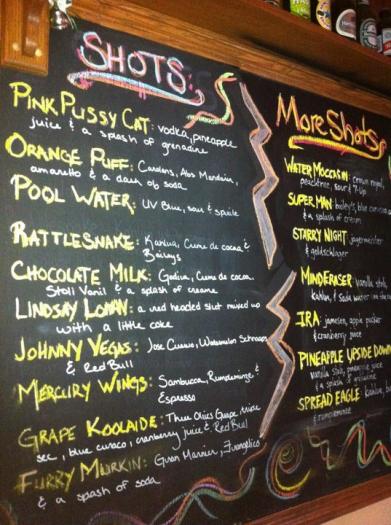 SHOTS
PINK PUSSY CAT: vodka, pineapple
juice & a splash of grenadine
ORANGE PUFF: Carolans, Abs Mandarin,
amaretto & a dash of soda
POOL WATER: UV Blue, sour & sprite
RATTLESNAKE: Kahlua, Creme de cacao &
Baileys
CHOCOLATE MILK: Godiva, Creme de cacao
Stoli Vanil & a splash of creame
LINDSAY LOHAN: a red headed slut mixed up
with a little coke
JOHNNY VEGAS: Jose Cuervo, Watermelon Schnapps
& Red Bull
MERCURY WINGS: Sambucca, Rumpleminze &
Espresso
GRAPE KOOLAIDE: Three Olives Grape, triple
sec, blue curaco, cranberry juice & Red Bull
FURRY MURKIN: Gran Marnier, Frangelico
& a splash of soda
More Shots
WATER MOCCASIN: Crown royal,
peachtree, sour & 7-Up
SUPER MAN: bailey's, blue curacao
& a splash of cream
STARRY NIGHT: jagermeister
& goldschlager
MINDERASER: Vanilla stoli,
kahlua, & soda water
IRA: jameson, apple pucker
& cranberry juice
PINEAPPLE UPSIDE DOWN
Vanilla Stoli, pineapple juice
& a splash of grenadine
SPREAD EAGLE:
& rumpleminze